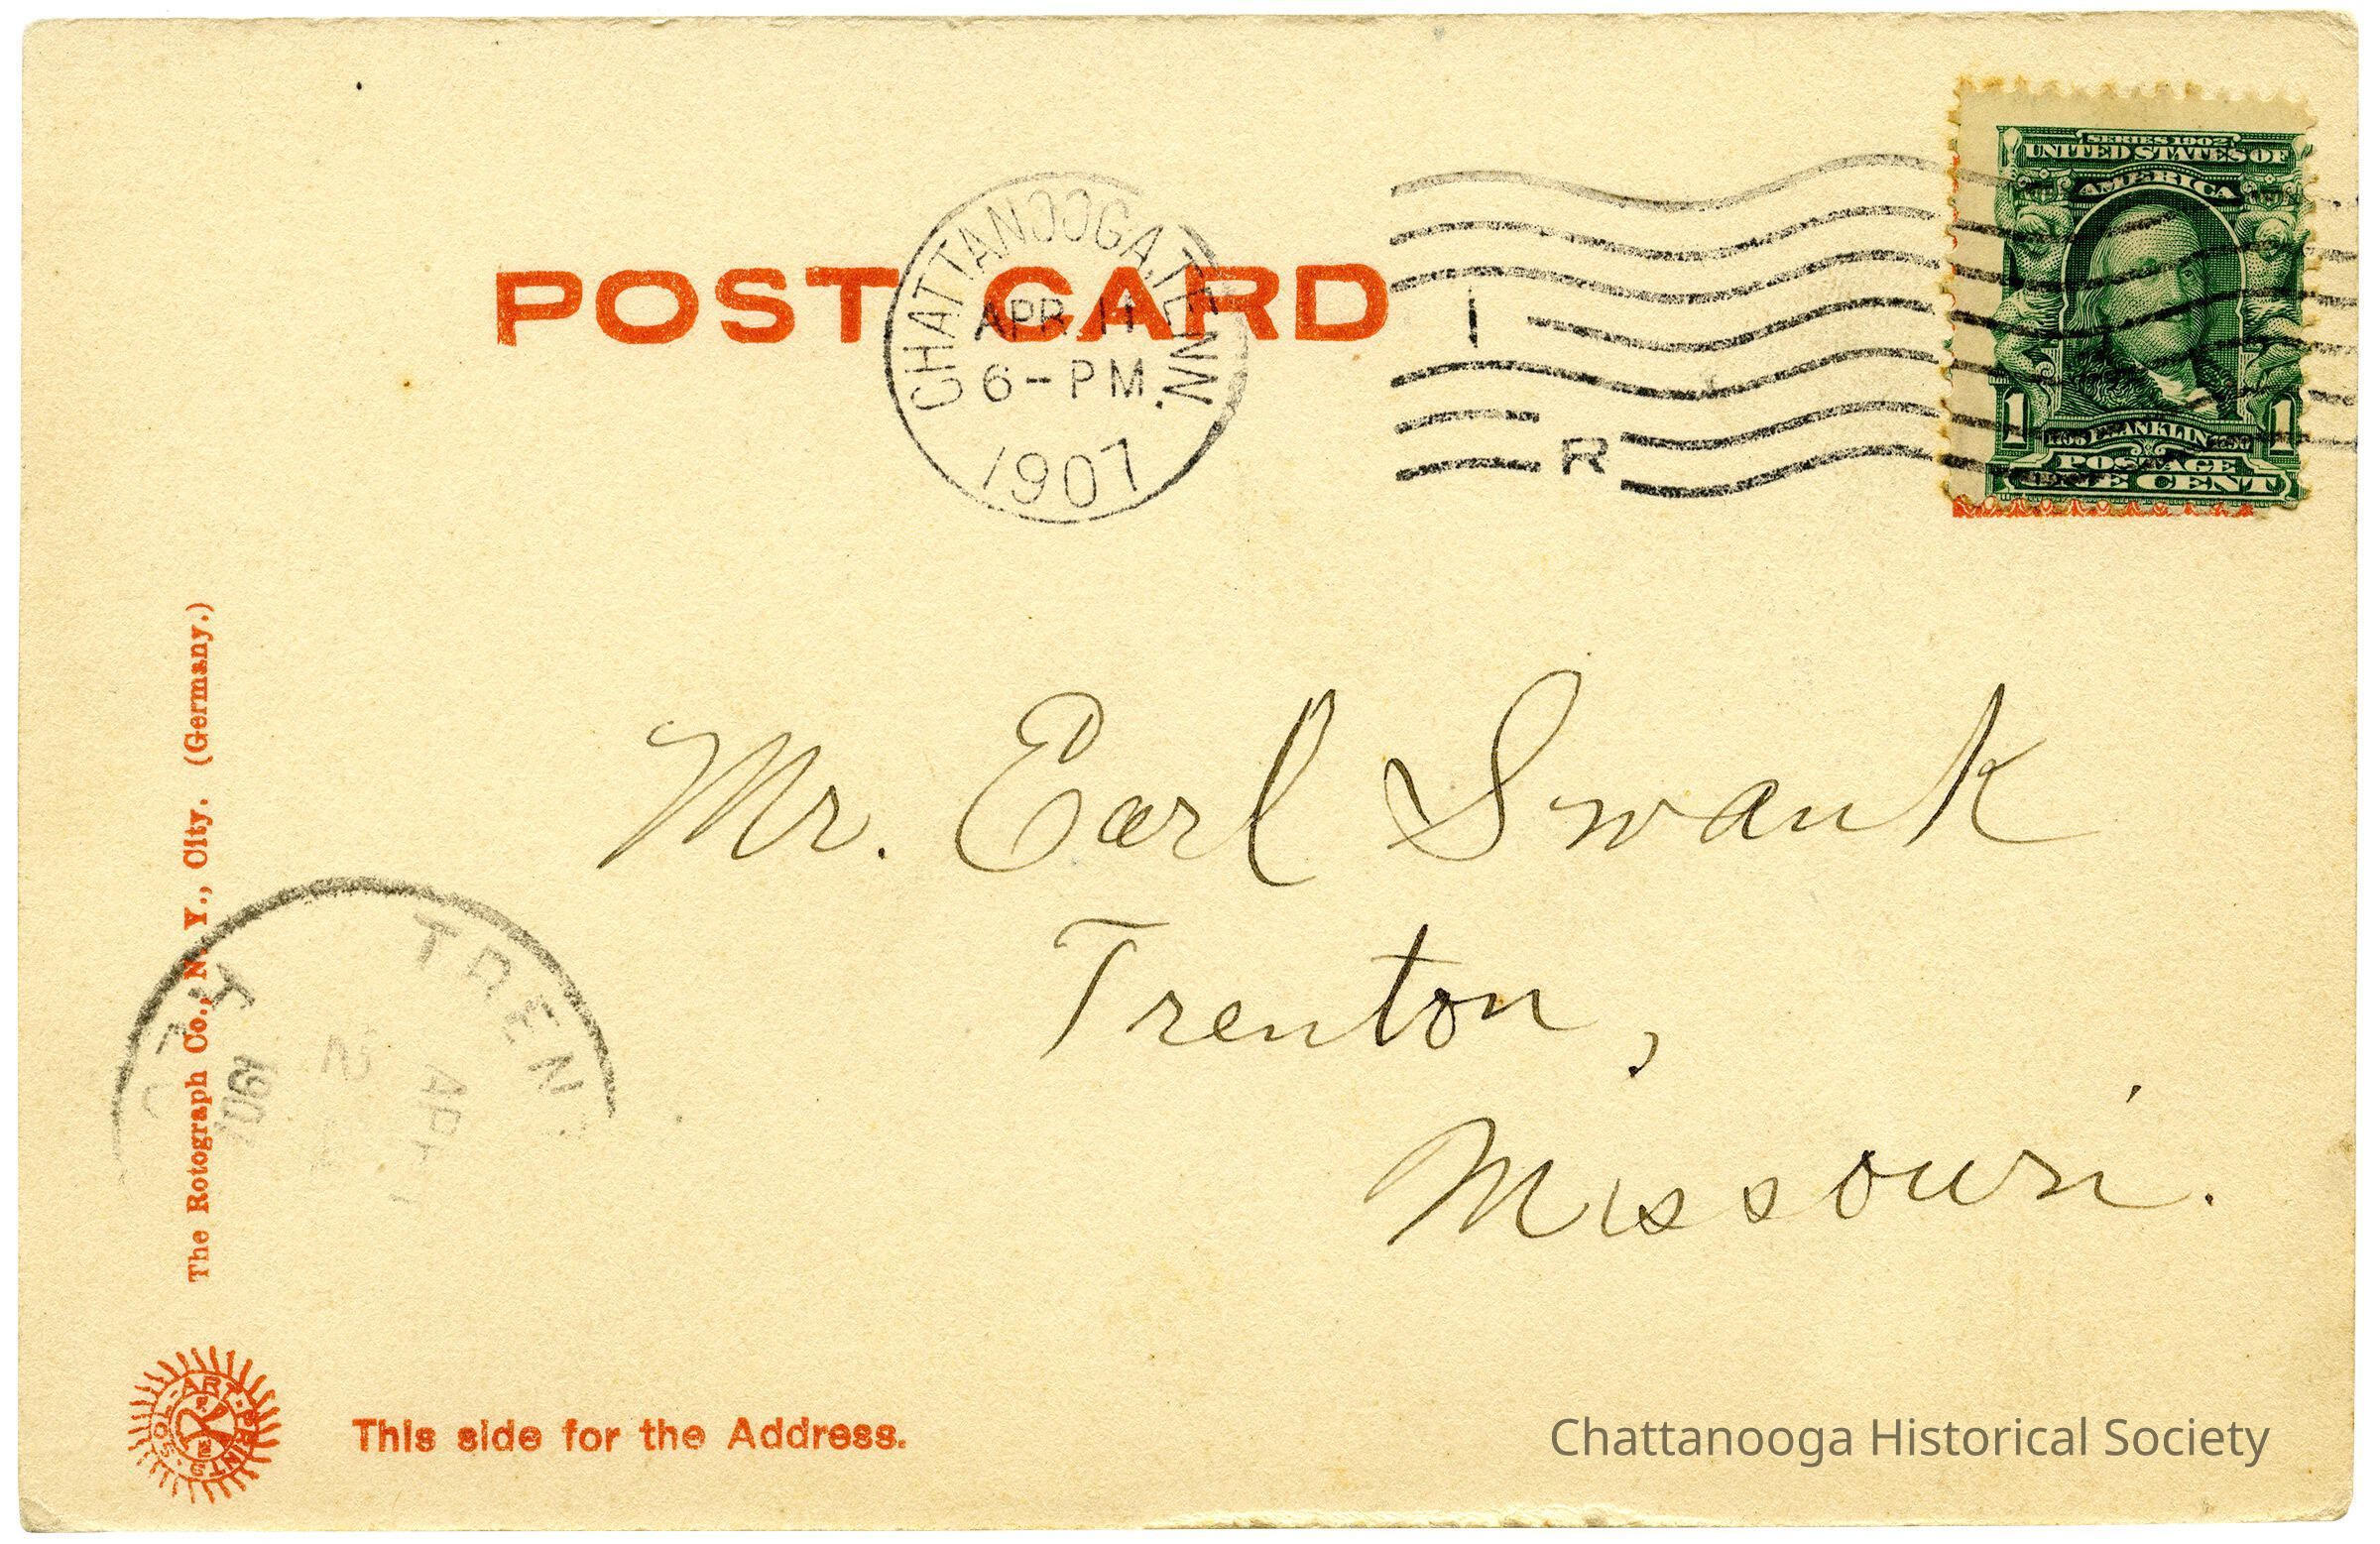 POST CARD
CHATTANOOGA, TENN.
APR 11
6-PM
1907
I
R
SERIES 1902
UNITED STATES OF
AMERICA
FRANKLIN
POSTAGE
1 ONE CENT 1
Mr. Earl Swank
Trenton,
Missouri.
The Rotograph Co., N. Y., City. (Germany.)
TREN
1907
SOL-ART-PRINTS
This side for the Address.
Chattanooga Historical Society